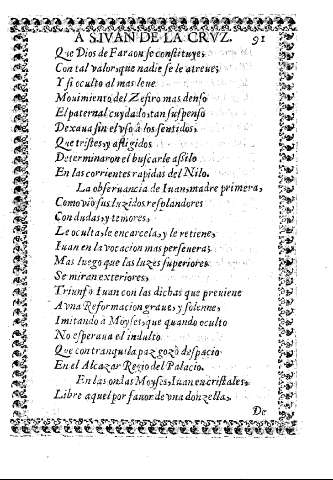 A S.IVAN DE LA CRVZ. 91
Que Dios de Faraon se constituye,
Con tal valor, que nadie se le atreue;
Y si oculto al mas leue
Mouimiento del Zefiro mas denso
El paternal cuydado, tan suspenso
Dexaua sin el vso à los sentidos,
Que tristes, y afligidos
Determinaron el buscarle asilo
En las corrientes rapidas del Nilo.
La obseruancia de Iuan, madre primera,
Como viò sus luzidos resplandores
Con dudas, y temores,
Le oculta, le encarcela, y le retiene,
Iuan en la vocacion mas perseuera;
Mas luego que las luzes superiores
Se miran exteriores,
Triunfò Iuan con las dichas que preuiene
A vna Reformacion graue, y solenne,
Imitando à Moyses, que quando oculto
No esperaua el indulto
Que con tranquila paz gozò despacio
En el Alcazar Regio del Palacio.
En las ondas Moyses, Iuan en cristales,
Libre aquel por fauor de vna donzella,
De